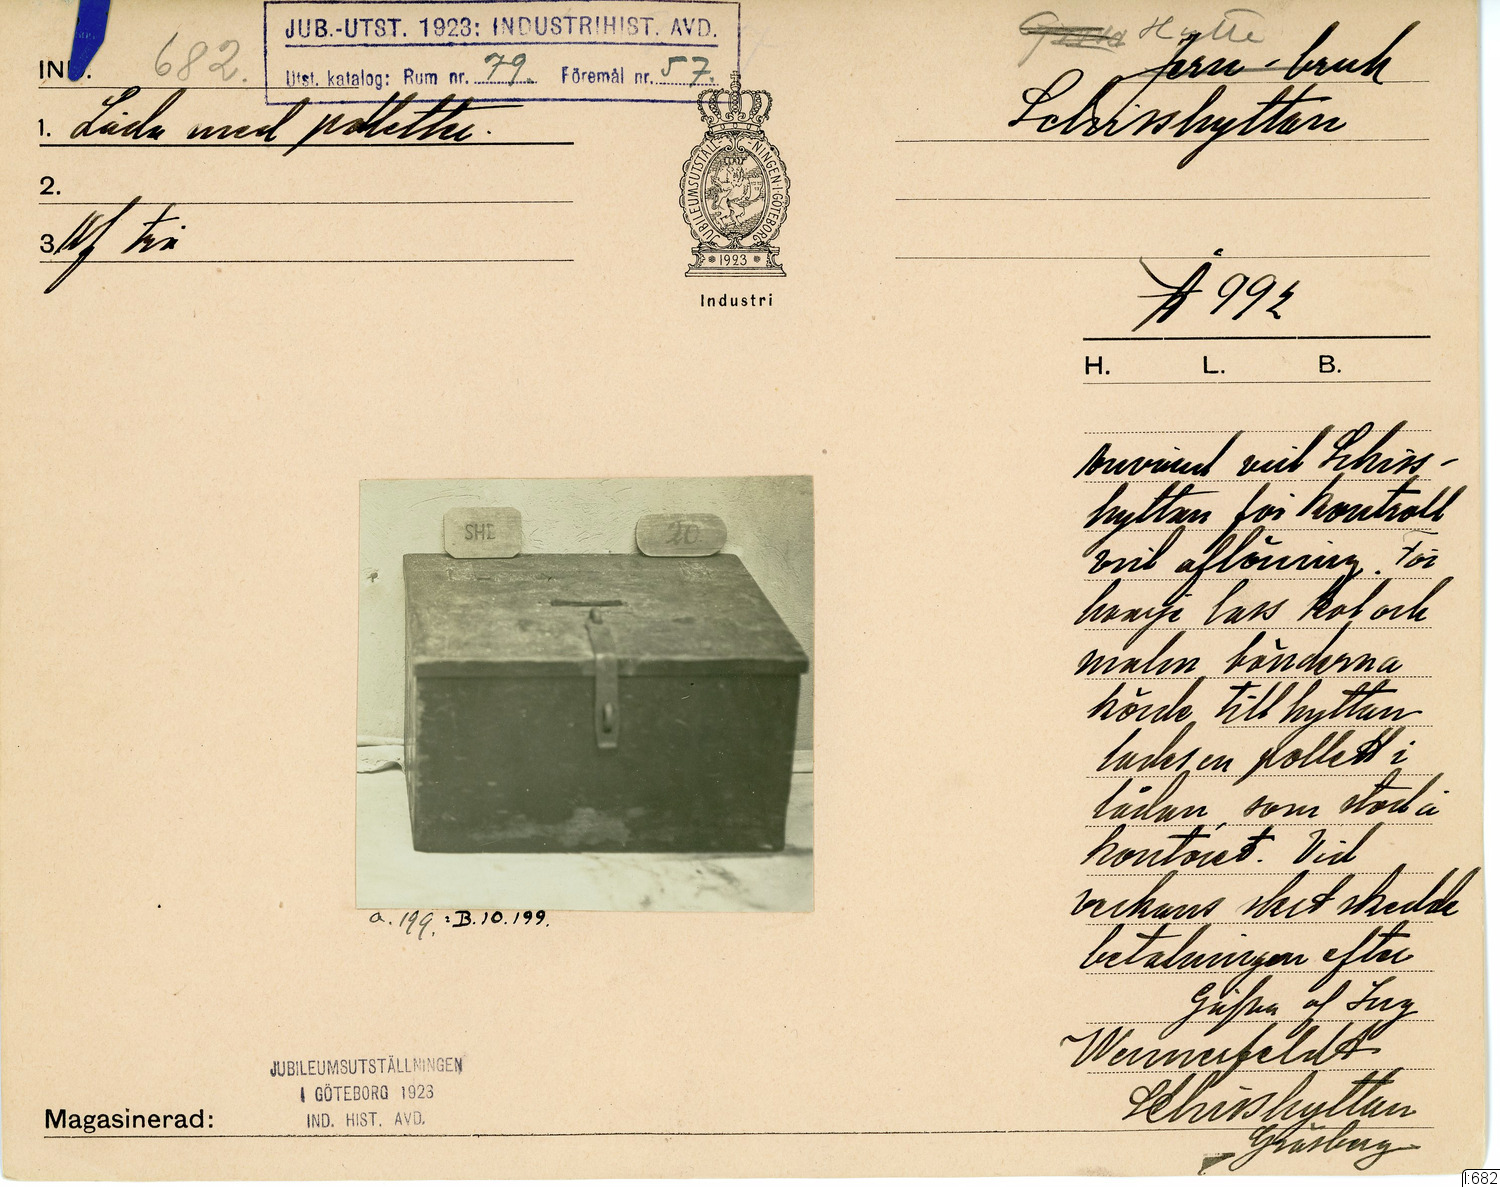 JUB.-UTST. 1923: INDUSTRIHIST. AVD.
Utst. katalog: Rum nr. 79. Föremål nr. 57.
IND. 682.
Hytte
Jern-bruk
1. Låda med polletter.
Schisshyttan
2.
3. Af trä
JUBILEUMSUTSTÄLL-NINGEN·I·GÖTEBORG
1923
Industri
Å 992
H. L. B.
Använd vid Schiss-
hyttan för kontroll
vid aflöning. För
hvarje lass kol och
malm bönderna
körde till hyttan
lades en pollett i
lådan, som stod å
kontoret. Vid
veckans slut skedde
betalningen efter
Gåfva af Ing
Wennerfeldt
Schisshyttan
Gräsberg
SHE
20
a. 199. : B.10.199.
JUBILEUMSUTSTÄLLNINGEN
I GÖTEBORG 1923
IND. HIST. AVD.
Magasinerad:
I:682